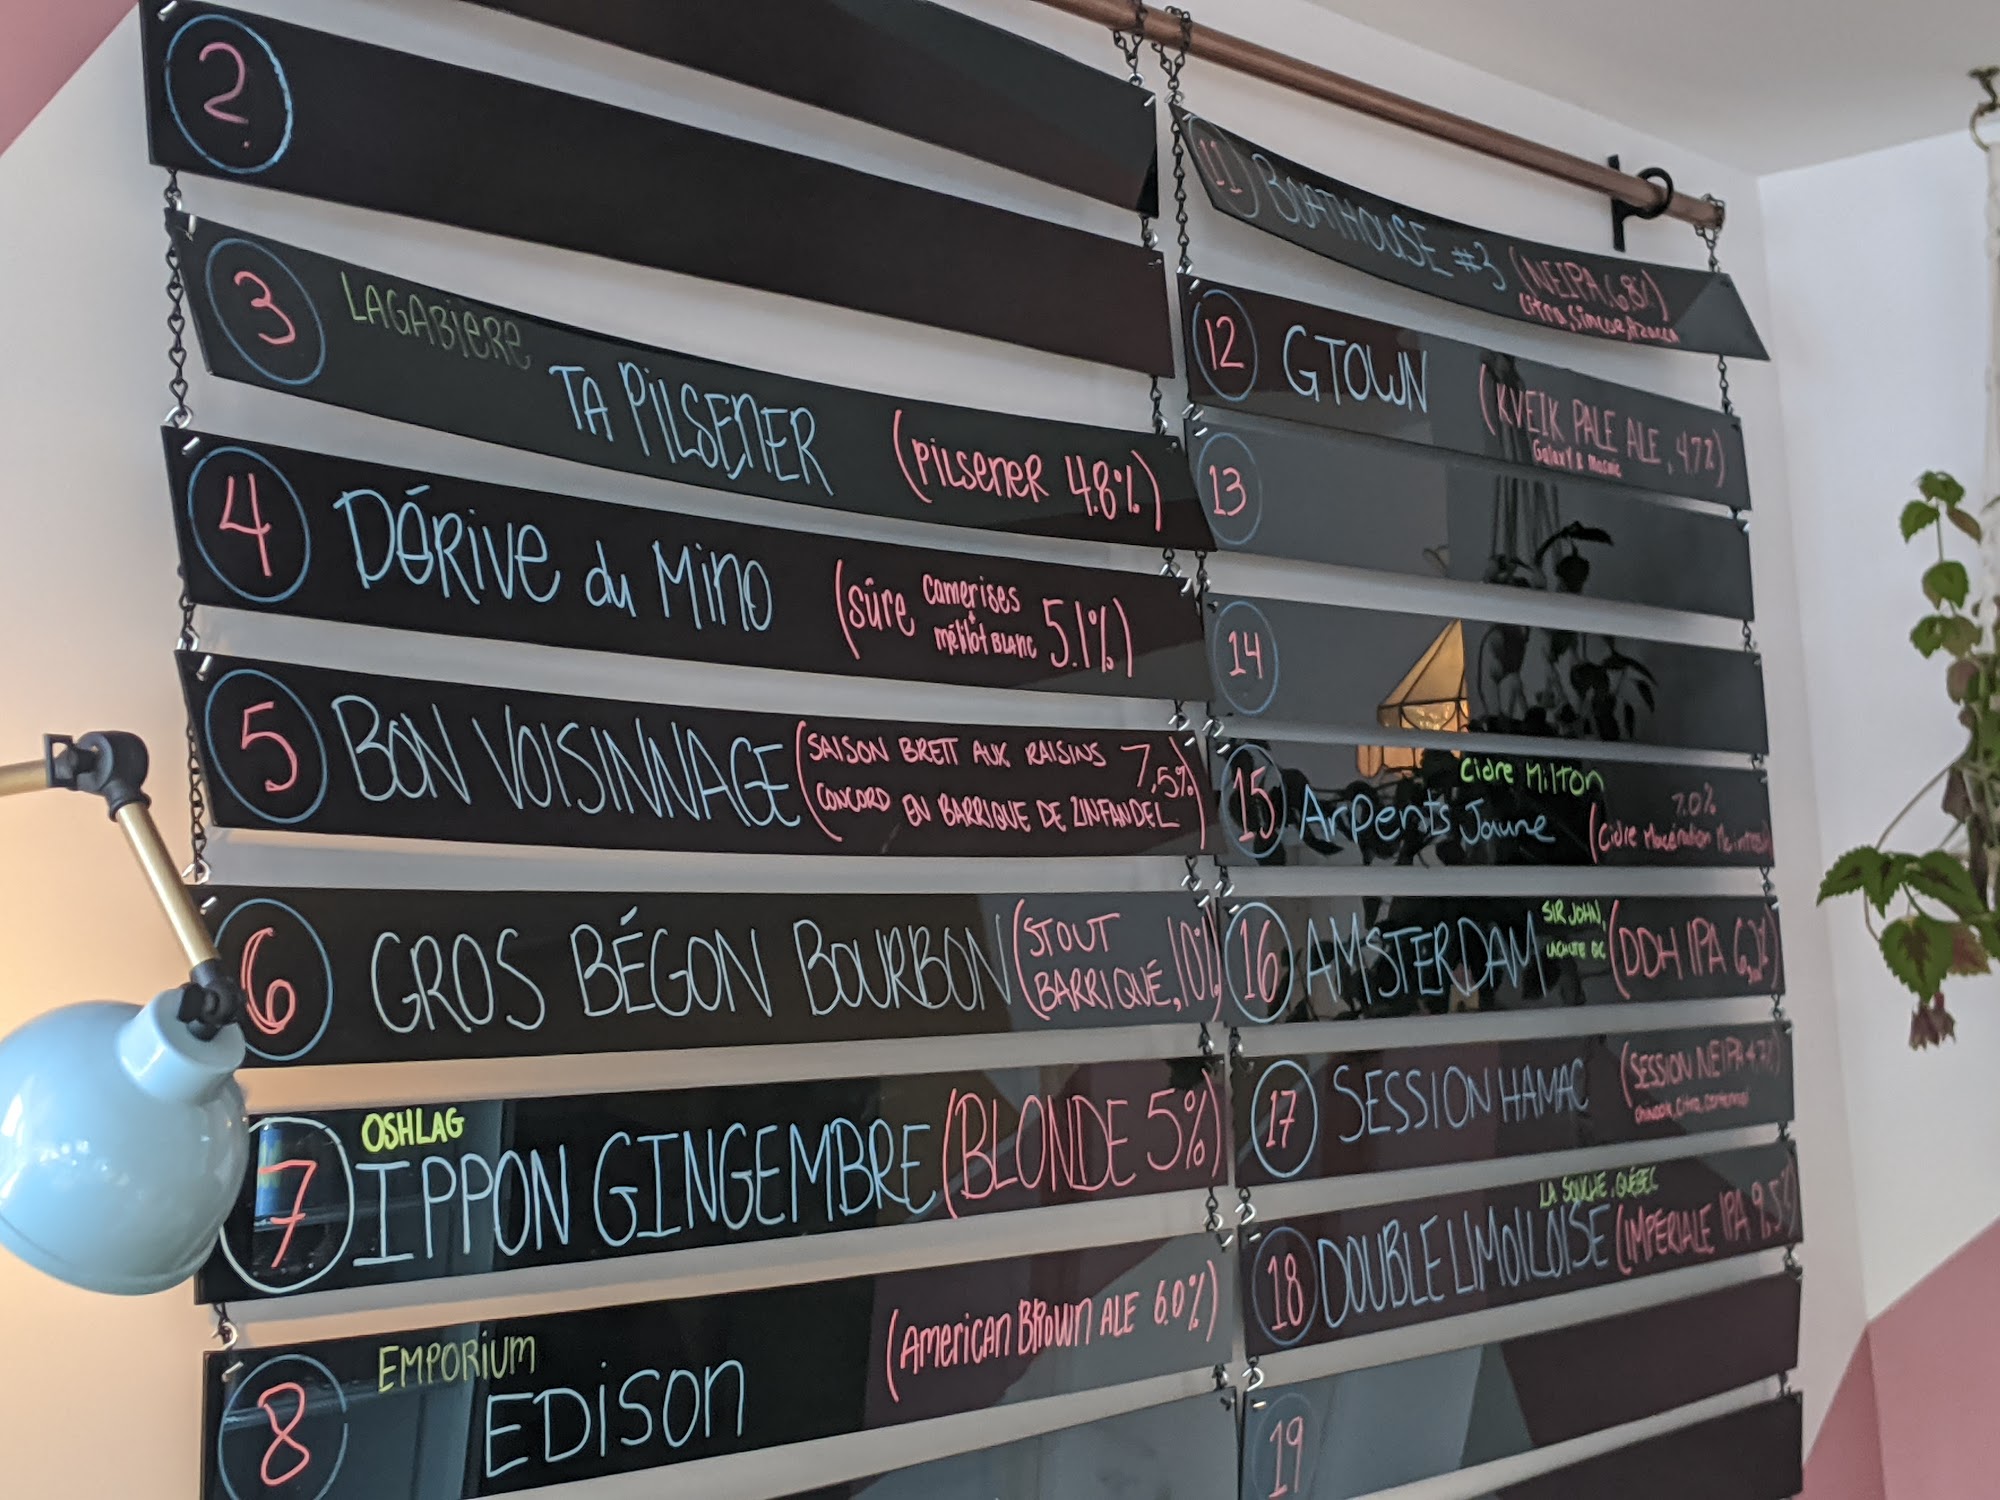 2
3 LAGABIÈRE
TA PILSENER (PILSENER 4.8%)
4 DÉRIVE du MINO (sûre camerises + mélilot BLANC 5.1%)
5 BON VOISINNAGE (SAISON BRETT AUX RAISINS 7,5%
CONCORD EN BARRIQUE DE ZINFANDEL)
6 GROS BÉGON BOURBON (STOUT
BARRIQUÉ, 10%)
7 OSHLAG
IPPON GINGEMBRE (BLONDE 5%)
8 EMPORIUM
EDISON (AMERICAN BROWN ALE 6.0%)
11 BOATHOUSE #3 (NEIPA, 6.8%)
Citra, Simcoe, Azacca
12 GTOWN (KVEIK PALE ALE, 4.7%)
Galaxy & Mosaic
13
14
15 Cidre Milton
Arpents Jaune 7.0%
(Cidre Macération
16 AMSTERDAM SIR JOHN,
LACHUTE QC (DDH IPA
17 SESSION HAMAC (SESSION NEIPA 4.7%)
Chinook, Citra, Centennial
18 LA SOUCHE, QUÉBEC
DOUBLE LIMOILOISE (IMPÉRIALE IPA 9.5%)
19